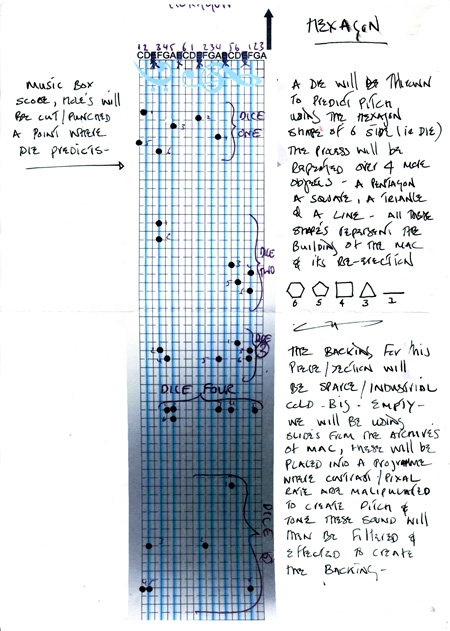 HEXAGON
12 345 61 234 56 123
CDEFGABCDEFGABCDEFGA
MUSIC BOX
SCORE, HOLE'S WILL
BE CUT/PUNCHED
A POINT WHERE
DIE PREDICTS-
DICE
ONE
DICE
TWO
DICE
3
DICE FOUR
DICE
A DIE WILL BE THROWN
TO PREDICT PITCH
USING THE HEXAGON
SHAPE OF 6 SIDE (ie DIE)
THE PROCESS WILL BE
REPEATED OVER 4 MORE
OBJECTS - A PENTAGON
A SQUARE, A TRIANGLE
& A LINE - ALL THESE
SHAPES REPRESENT THE
BUILDING OF THE MAC
& ITS RE-ERECTION
6 5 4 3 2
THE BACKING FOR THIS
PIECE/SECTION WILL
BE SPARCE/INDUSTRIAL
COLD - BIG - EMPTY -
WE WILL BE USING
SLIDES FROM THE ARCHIVES
OF MAC, THESE WILL BE
PLACED INTO A PROGRAMME
WHERE CONTRAST/PIXAL
RATE ARE MALIPULATED
TO CREATE PITCH &
TONE THESE SOUND WILL
THEN BE FILTERED &
EFFECTED TO CREATE
THE BACKING-